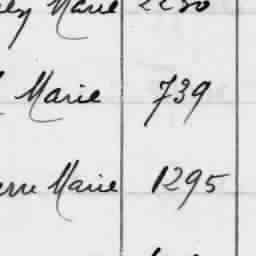 Marie 2230
Marie 739
erre Marie 1295